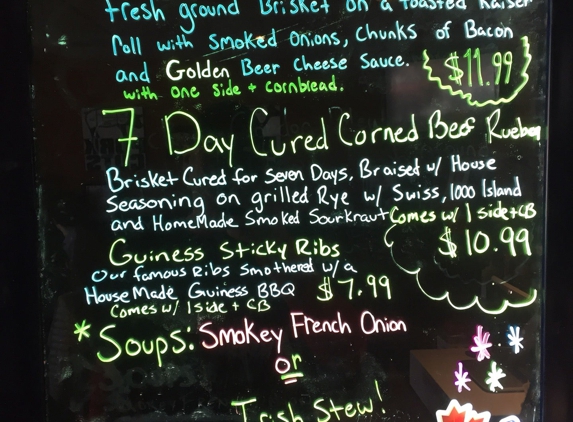 fresh ground Brisket on a toasted Kaiser
Roll with smoked Onions, Chunks of Bacon
and Golden Beer Cheese Sauce. $11.99
with one side + cornbread.
7 Day Cured Corned Beef Rueben
Brisket Cured for Seven Days, Braised w/ House
Seasoning on grilled Rye w/ Swiss, 1000 Island
and HomeMade Smoked Sourkraut Comes w/ 1 side + CB
$10.99
Guiness Sticky Ribs
Our famous Ribs Smothered w/ a
House Made Guiness BBQ $7.99
Comes w/ 1 side + CB
*Soups: Smokey French Onion
or
Irish Stew!